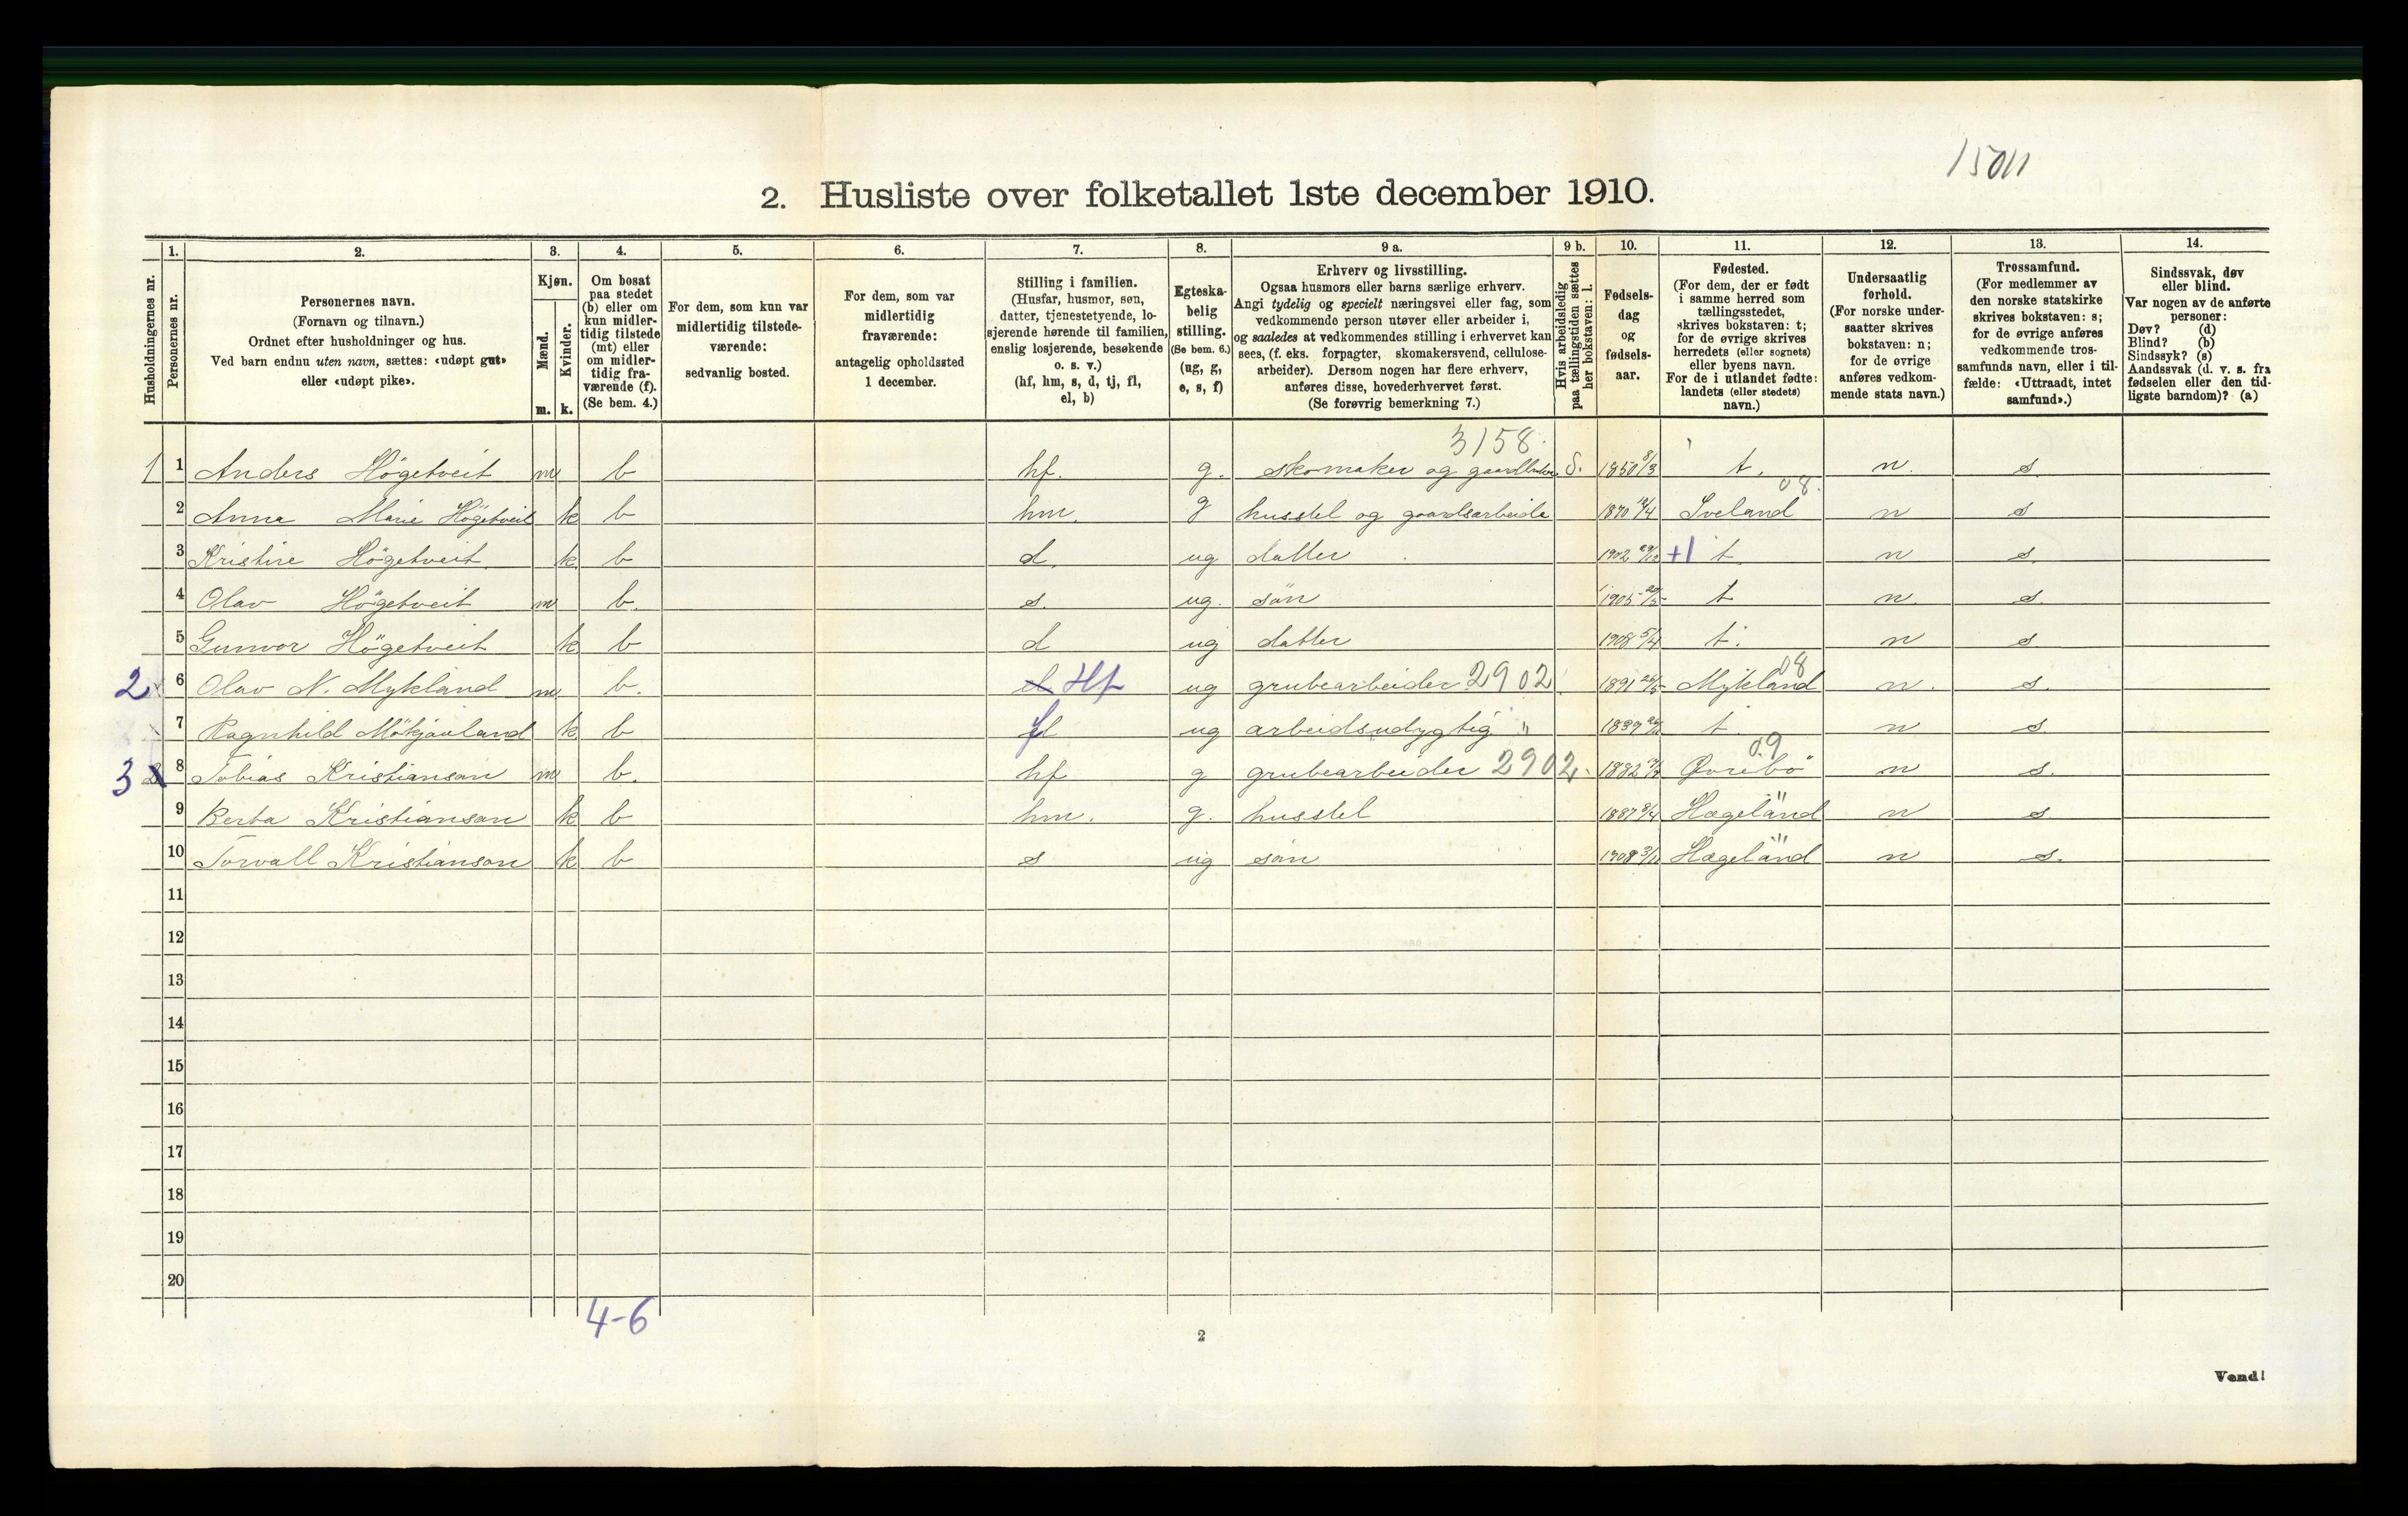 15011
2. Husliste over folketallet 1ste december 1910.
Husholdningernes nr.
1.
Personernes nr.
2.
Personernes navn.
(Fornavn og tilnavn.)
Ordnet efter husholdninger og hus.
Ved barn endnu uten navn, sættes: «udøpt gut»
eller «udøpt pike».
3.
Kjøn.
Mænd.
Kvinder.
m. k.
4.
Om bosat
paa stedet
(b) eller om
kun midler-
tidig tilstede
(mt) eller
om midler-
tidig fra-
værende (f).
(Se bem. 4.)
5.
For dem, som kun var
midlertidig tilstede-
værende:
sedvanlig bosted.
6.
For dem, som var
midlertidig
fraværende:
antagelig opholdssted
1 december.
7.
Stilling i familien.
(Husfar, husmor, søn,
datter, tjenestetyende, lo-
sjerende hørende til familien,
enslig losjerende, besøkende
o. s. v.)
(hf, hm, s, d, tj, fl,
el, b)
8.
Egteska-
belig
stilling.
(Se bem. 6.)
(ug, g,
e, s, f)
9 a.
Erhverv og livsstilling.
Ogsaa husmors eller barns særlige erhverv.
Angi tydelig og specielt næringsvei eller fag, som
vedkommende person utøver eller arbeider i,
og saaledes at vedkommendes stilling i erhvervet kan
sees, (f. eks. forpagter, skomakersvend, cellulose-
arbeider). Dersom nogen har flere erhverv,
anføres disse, hovederhvervet først.
(Se forøvrig bemerkning 7.)
9 b.
Hvis arbeidsledig
paa tællingstiden sættes
her bokstaven: l.
10.
Fødsels-
dag
og
fødsels-
aar.
11.
Fødested.
(For dem, der er født
i samme herred som
tællingsstedet,
skrives bokstaven: t;
for de øvrige skrives
herredets (eller sognets)
eller byens navn.
For de i utlandet fødte:
landets (eller stedets)
navn.)
12.
Undersaatlig
forhold.
(For norske under-
saatter skrives
bokstaven: n;
for de øvrige
anføres vedkom-
mende stats navn.)
13.
Trossamfund.
(For medlemmer av
den norske statskirke
skrives bokstaven: s;
for de øvrige anføres
vedkommende tros-
samfunds navn, eller i til-
fælde: «Uttraadt, intet
samfund».)
14.
Sindssvak, døv
eller blind.
Var nogen av de anførte
personer:
Døv? (d)
Blind? (b)
Sindssyk? (s)
Aandssvak (d. v. s. fra
fødselen eller den tid-
ligste barndom)? (a)
3158.
1 1 Anders Högetveit m b hf. g. skomaker og gaardbruker S. 1850 8/3 t. n. s
08.
2 Anna Marie Högetveit k b hm. g husstel og gaardsarbeide 1870 Iveland n s
3 Kristine Högetveit k b d. ug datter 1902 29/12 +1 t. n s.
4 Olav Högetveit m b. s. ug. sön 1905 t n. s.
5 Gunvor Högetveit k b d ug datter 1908 5/4 t. n s.
08
2 6 Olav N. Mykland m b. el Hf ug grubearbeider 2902 1891 Mykland n. s.
7 Ragnhild Mökjavland k b fl ug arbeidsudygtig " 1839 t. n s.
09
3 8 Tobias Kristianson m b. hf g grubearbeider 2902 1882 Øvrebö n s.
"
9 Berta Kristianson k b hm. g. husstel 1887 8/4 Hægeland n s
"
10 Torvall Kristianson k b s ug sön 1908 3/11 Hægeland n s.
11
12
13
14
15
16
17
18
19
20
4-6
2
Vend!